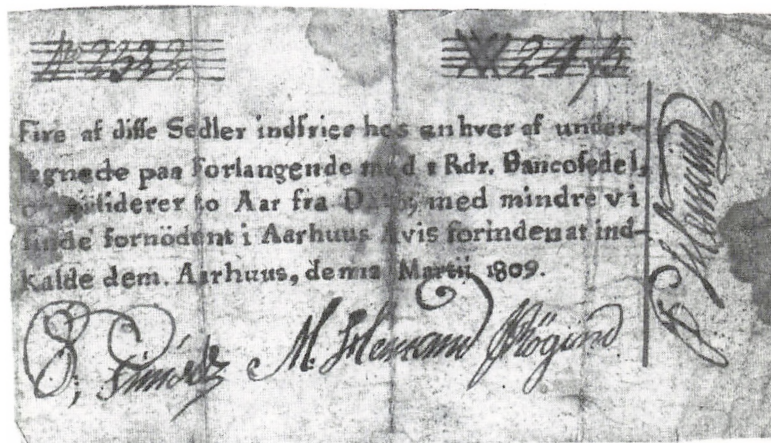 No 2332 24 ß
Fire af disse Sedler indfries hos enhver af under-
tegnede paa Forlangende med 1 Rdr. Bancosedel,
to Aar fra Dato, med mindre vi
finde fornödent i Aarhuus Avis forinden at ind-
kalde dem. Aarhuus, den 12 Martii 1809.
M.